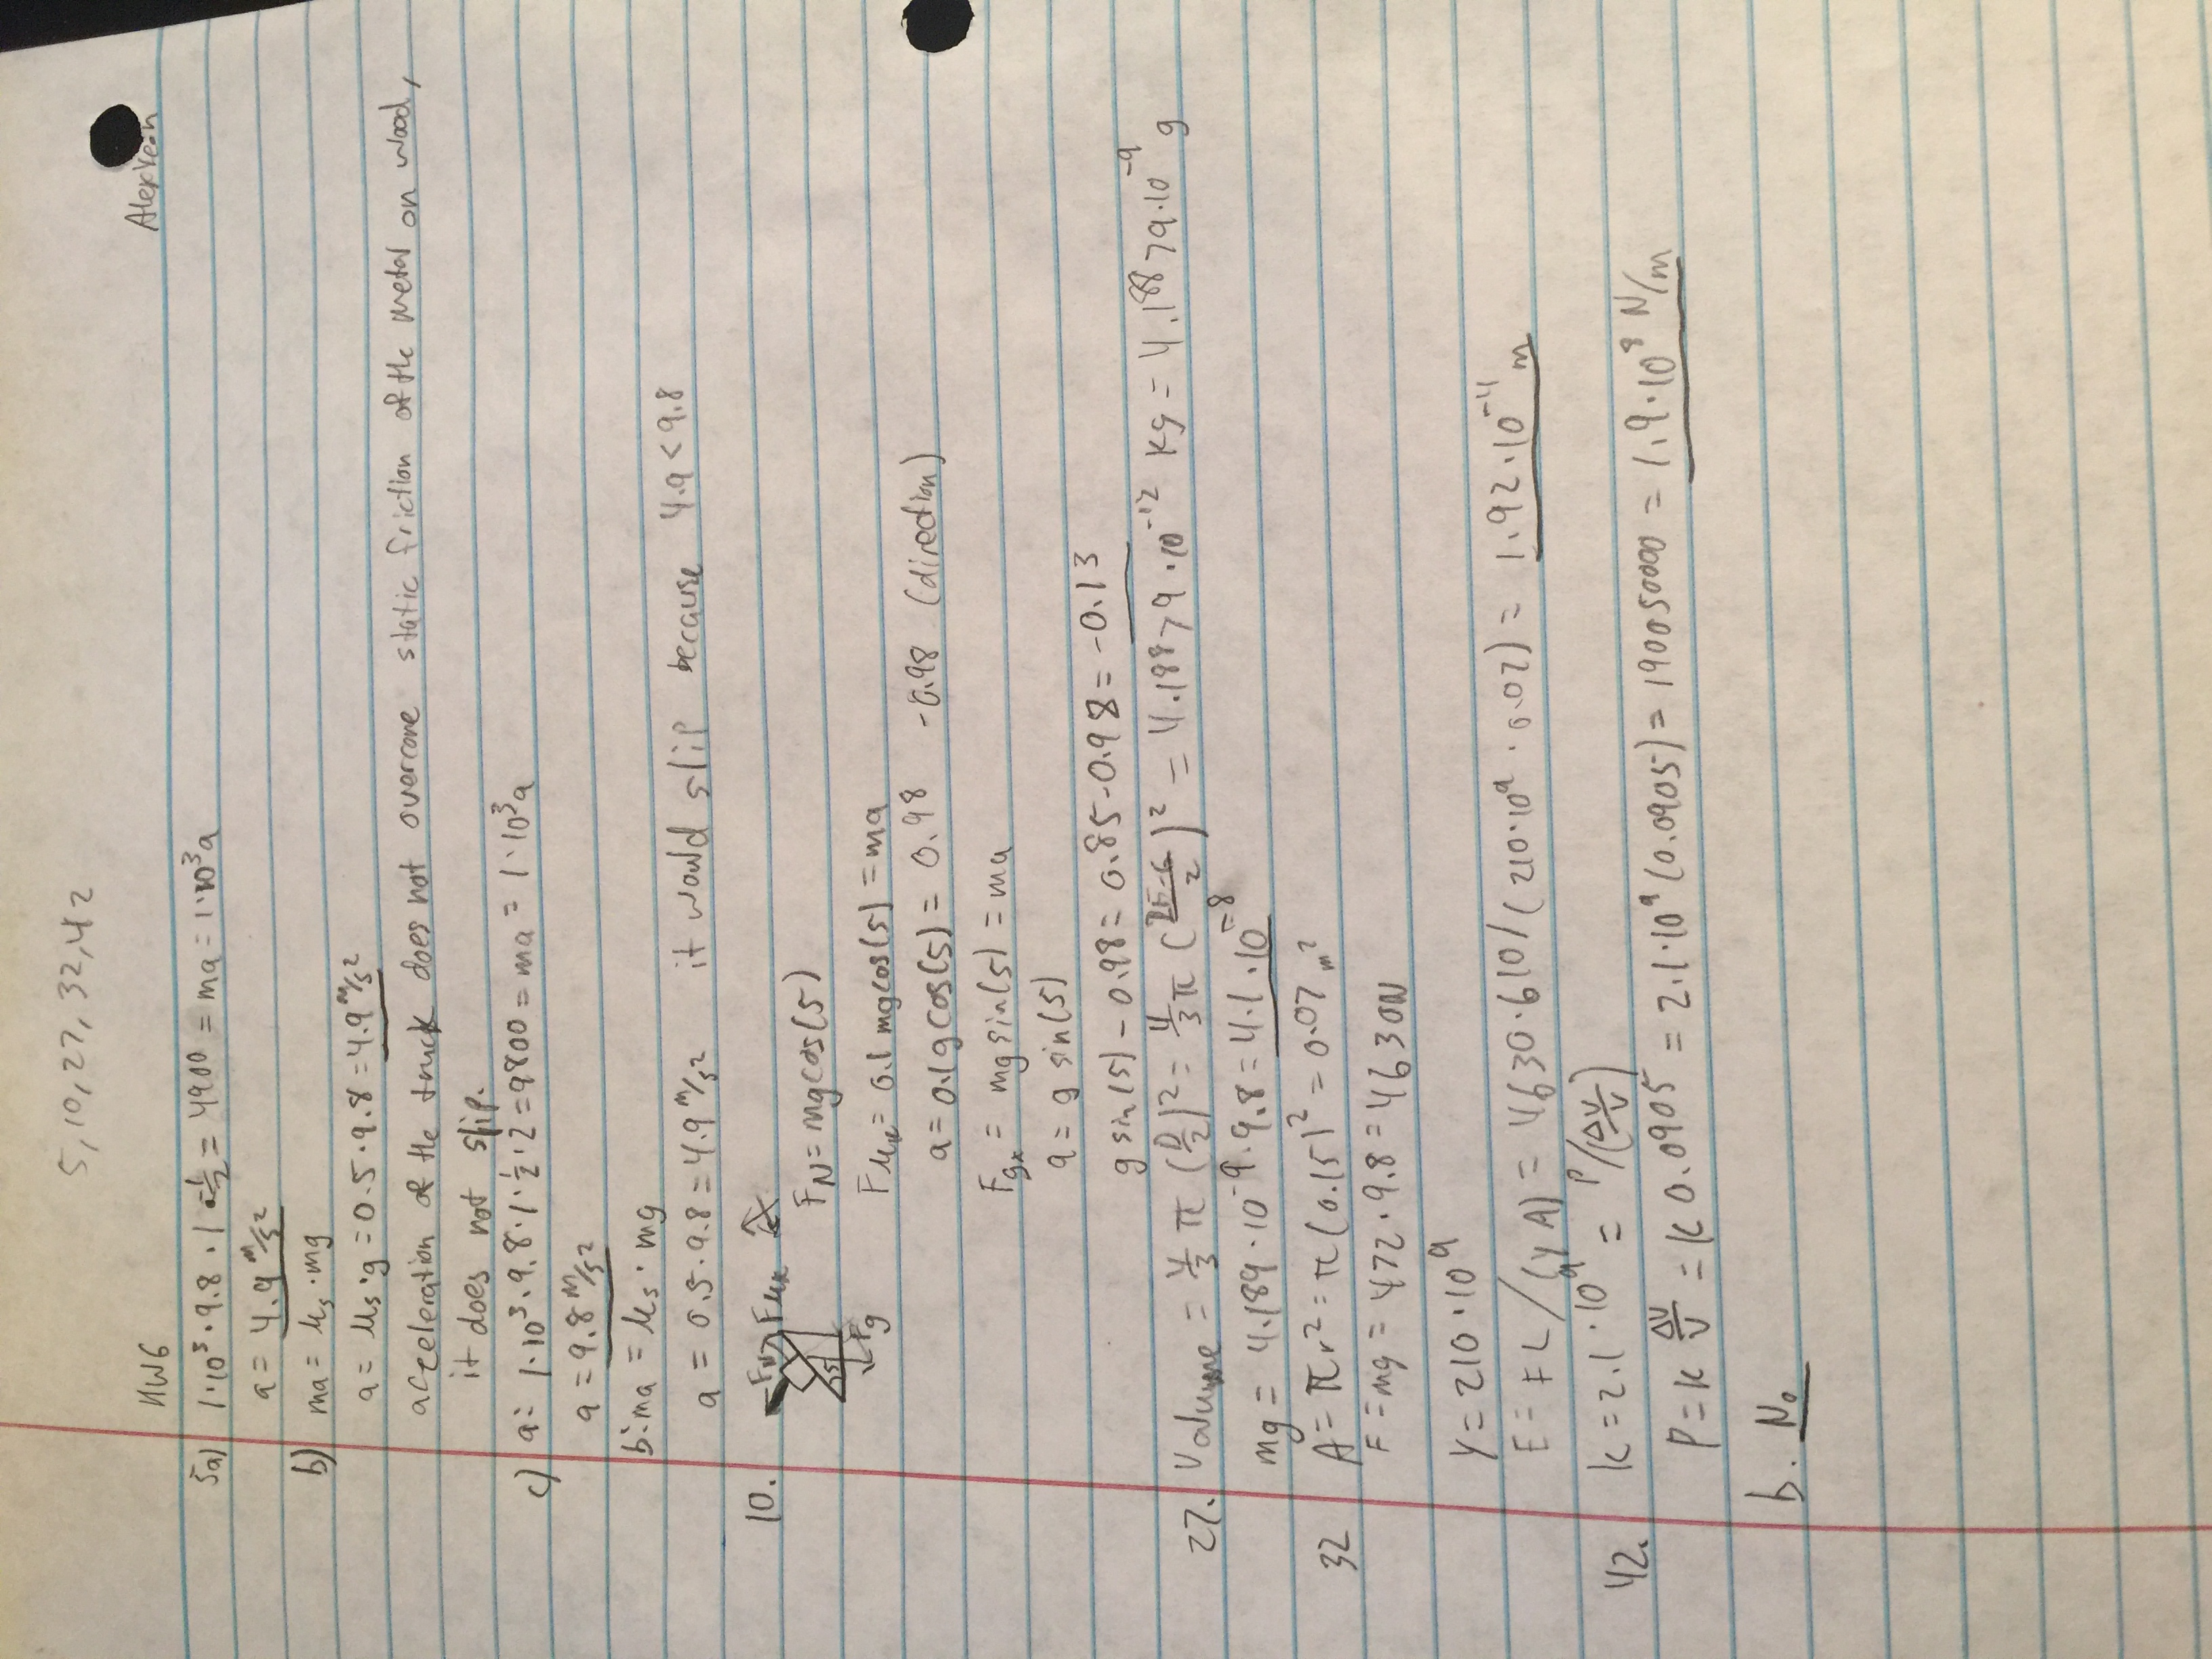 5,10,27,32,42
HW6
5a) 1·10³·9.8·1·½ = 4900 = ma = 1·10³a
a = 4.9 m/s²
b) ma = μs·mg
a = μs·g = 0.5·9.8 = 4.9 m/s²
acceleration of the truck does not overcome static friction of the metal on wood,
it does not slip.
c) a: 1·10³·9.8·1·½·2 = 9800 = ma = 1·10³a
a = 9.8 m/s²
b: ma = μs·mg
a = 0.5·9.8 = 4.9 m/s² it would slip because 4.9 < 9.8
10. FN Fμk
FN = mgcos(5)
5
Fg
Fμk = 0.1 mgcos(5) = ma
a = 0.1gcos(5) = 0.98 -0.98 (direction)
Fgx = mgsin(5) = ma
a = g sin(5)
g sin(5) - 0.98 = 0.85 - 0.98 = -0.13
27. Volume = 4/3 π (D/2)² = 4/3 π (2E-6/2)² = 4.18879·10⁻¹² kg = 4.18879·10⁻⁹ g
mg = 4.189·10⁻⁹·9.8 = 4.1·10⁻⁸
32 A = πr² = π(0.15)² = 0.07 m²
F = mg = 472·9.8 = 4630N
Y = 210·10⁹
E = FL/(yA) = 4630·610/(210·10⁹·0.07) = 1.92·10⁻⁴ m
42. K = 2.1·10⁹ = P/(ΔV/V)
P = K ΔV/V = K 0.0905 = 2.1·10⁹(0.0905) = 190050000 = 1.9·10⁸ N/m
b. No